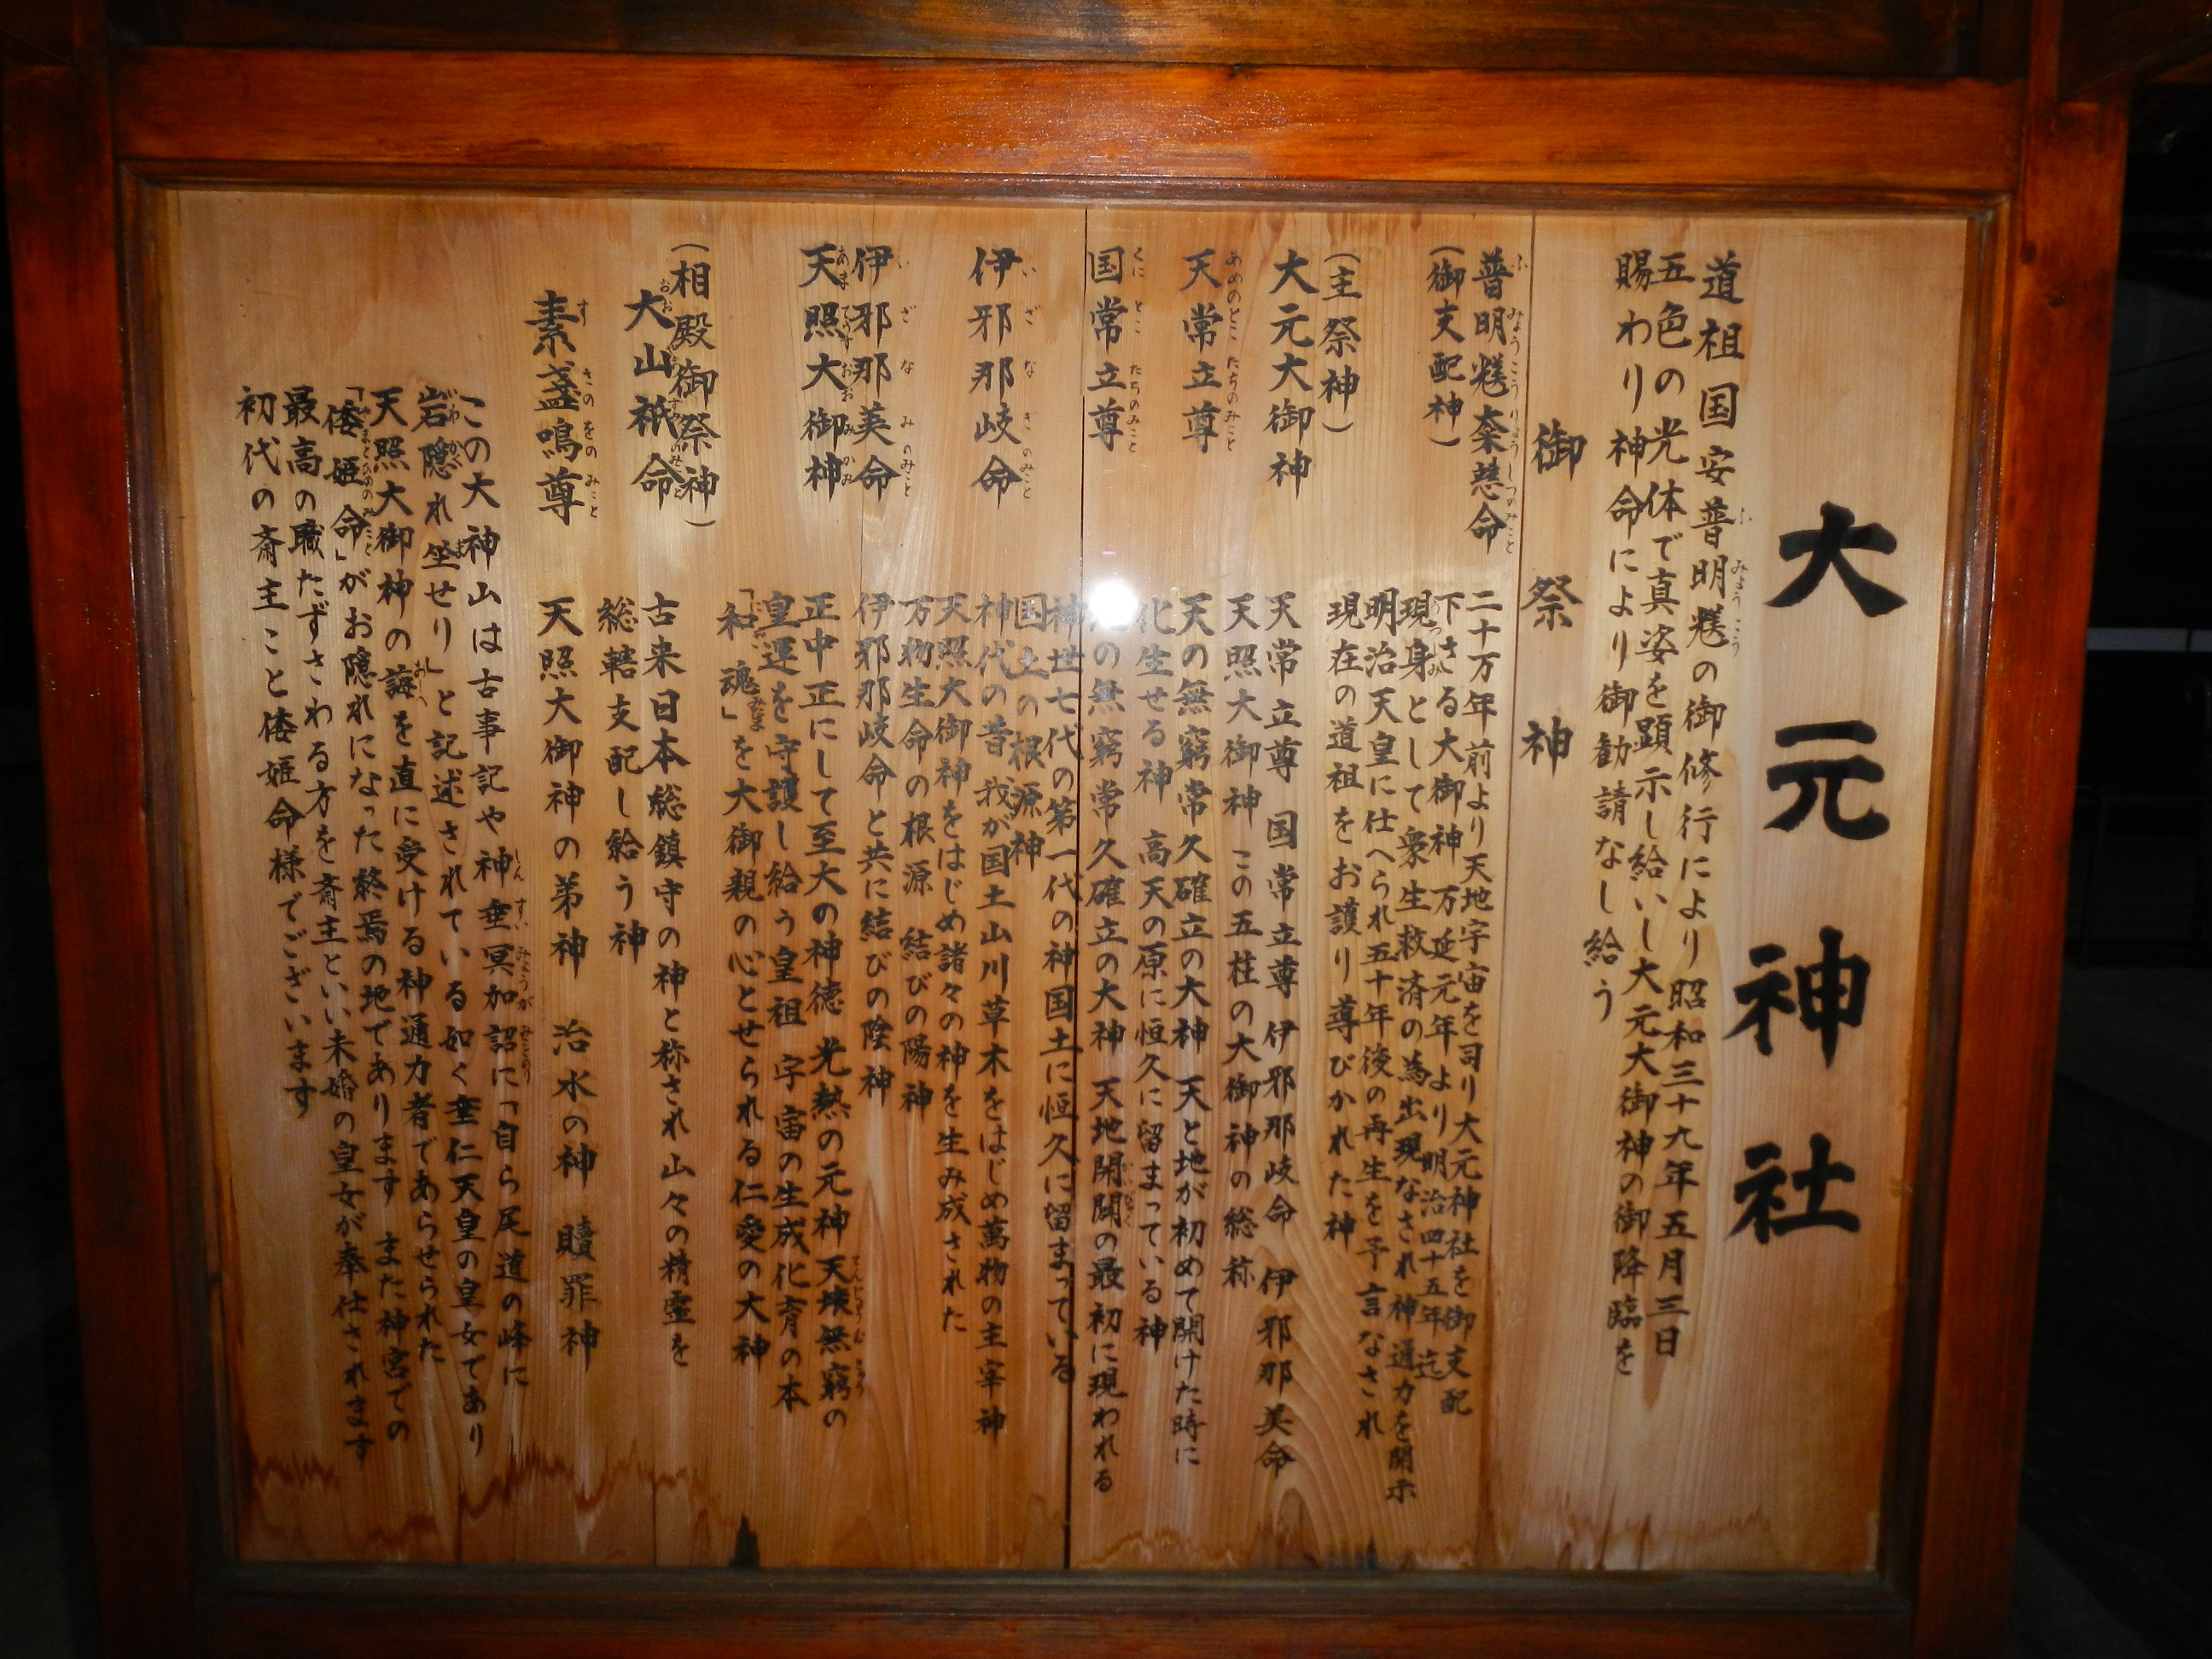 大元神社
道祖国安普明の御修行により昭和三十九年五月三日
五色の光体で真姿を顕示し給いし大元大御神の御降臨を
賜わり神命により御勧請なし給う
御祭神
普明慈命
(御支配神)
二十万年前より天地宇宙を司り大元神社を御支配
下さる大御神 万延元年より明治四十五年迄
現身として衆生救済の為出現なされ神通力を開示
明治天皇に仕へられ五十年後の再生を予言なされ
現在の道祖をお護り尊びかれた神
(主祭神)
大元大御神
天常立尊 国常立尊 伊邪那岐命 伊邪那美命
天照大御神 この五柱の大御神の総称
天常立尊
天の無窮常久確立の大神 天と地が初めて開けた時に
化生せる神 高天の原に恒久に留まっている神
国常立尊
の無窮常久確立の大神 天地開闢の最初に現われる
神世七代の第一代の神国土に恒久に留まっている
国土の根源神
伊邪那岐命
神代の昔我が国土山川草木をはじめ萬物の主宰神
天照大御神をはじめ諸々の神を生み成された
万物生命の根源 結びの陽神
伊邪那美命
伊邪那岐命と共に結びの陰神
天照大御神
正中正にして至大の神徳 光熱の元神 天壌無窮の
皇運を守護し給う皇祖 宇宙の生成化育の本
「和魂」を大御親の心とせられる仁愛の大神
(相殿御祭神)
大山祇命
古来日本総鎮守の神と称され山々の精霊を
総轄支配し給う神
素盞鳴尊
天照大御神の弟神 治水の神 贖罪神
この大神山は古事記や神垂冥加詔に「自ら尾道の峰に
岩隠れ坐せり」と記述されている如く垂仁天皇の皇女であり
天照大御神の誨を直に受ける神通力者であらせられた
「倭姫命」がお隠れになった終焉の地であります また神宮での
最高の職たずさわる方を斎主といい未婚の皇女が奉仕されます
初代の斎主こと倭姫命様でございます